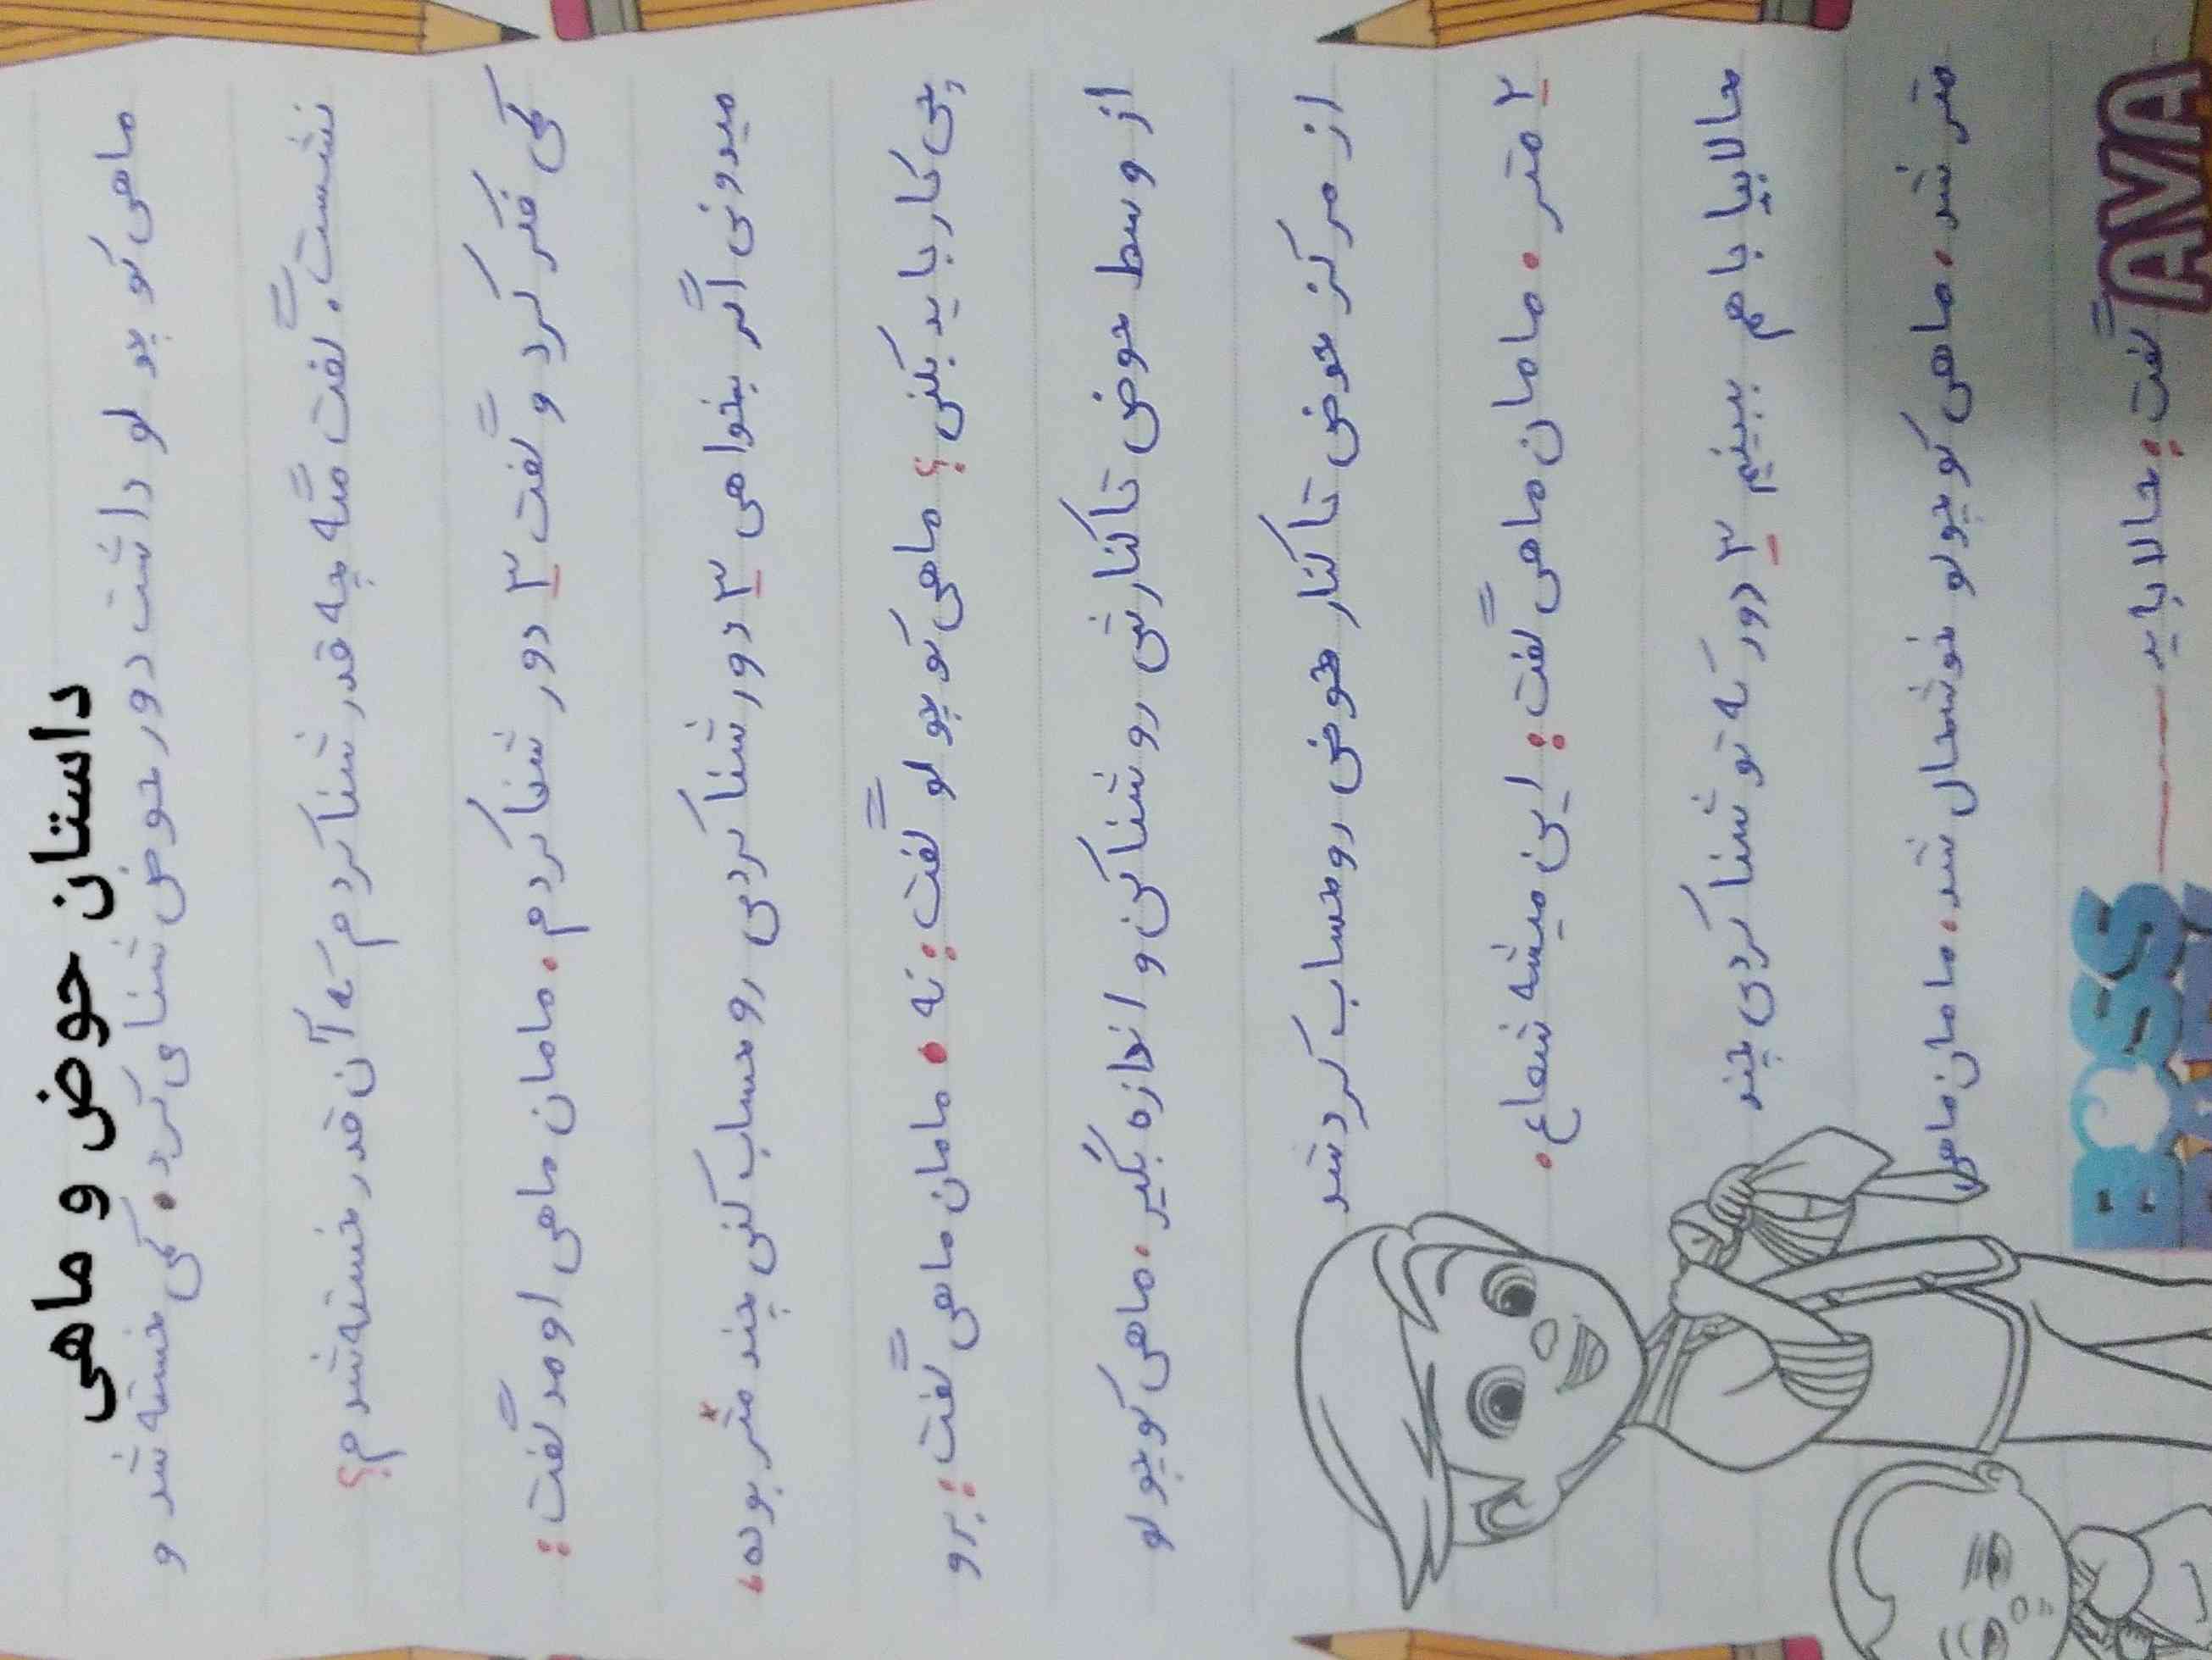 داستان حوض و ماهی
ماهی کو چو لو داشت دور حوض شنا می کرد. کمی خسته شد و
نشست. گفت مگه چه قدر شنا کردم که آن قدر خسته شدم؟
کمی فکر کرد و گفت ۳ دور شنا کردم. مامان ماهی اومد گفت:
میدونی اگر بخواهی ۳ دور شنا کردی رو حساب کنی چند متر بوده،
چی کار باید بکنی؟ ماهی کو چو لو گفت: نه. مامان ماهی گفت: برو
از وسط حوض تا کنارش رو شنا کن و اندازه بگیر. ماهی کوچولو
از مرکز حوض تا کنار حوض رو حساب کرد شد
۲ متر. مامان ماهی گفت: این میشه شعاع.
حالا بیا با هم ببینیم ۳ دور که تو شنا کردی چند
متر شد. ماهی کوچولو خوشحال شد. مامان ماهی
گفت: حالا باید
AVA
BOSS